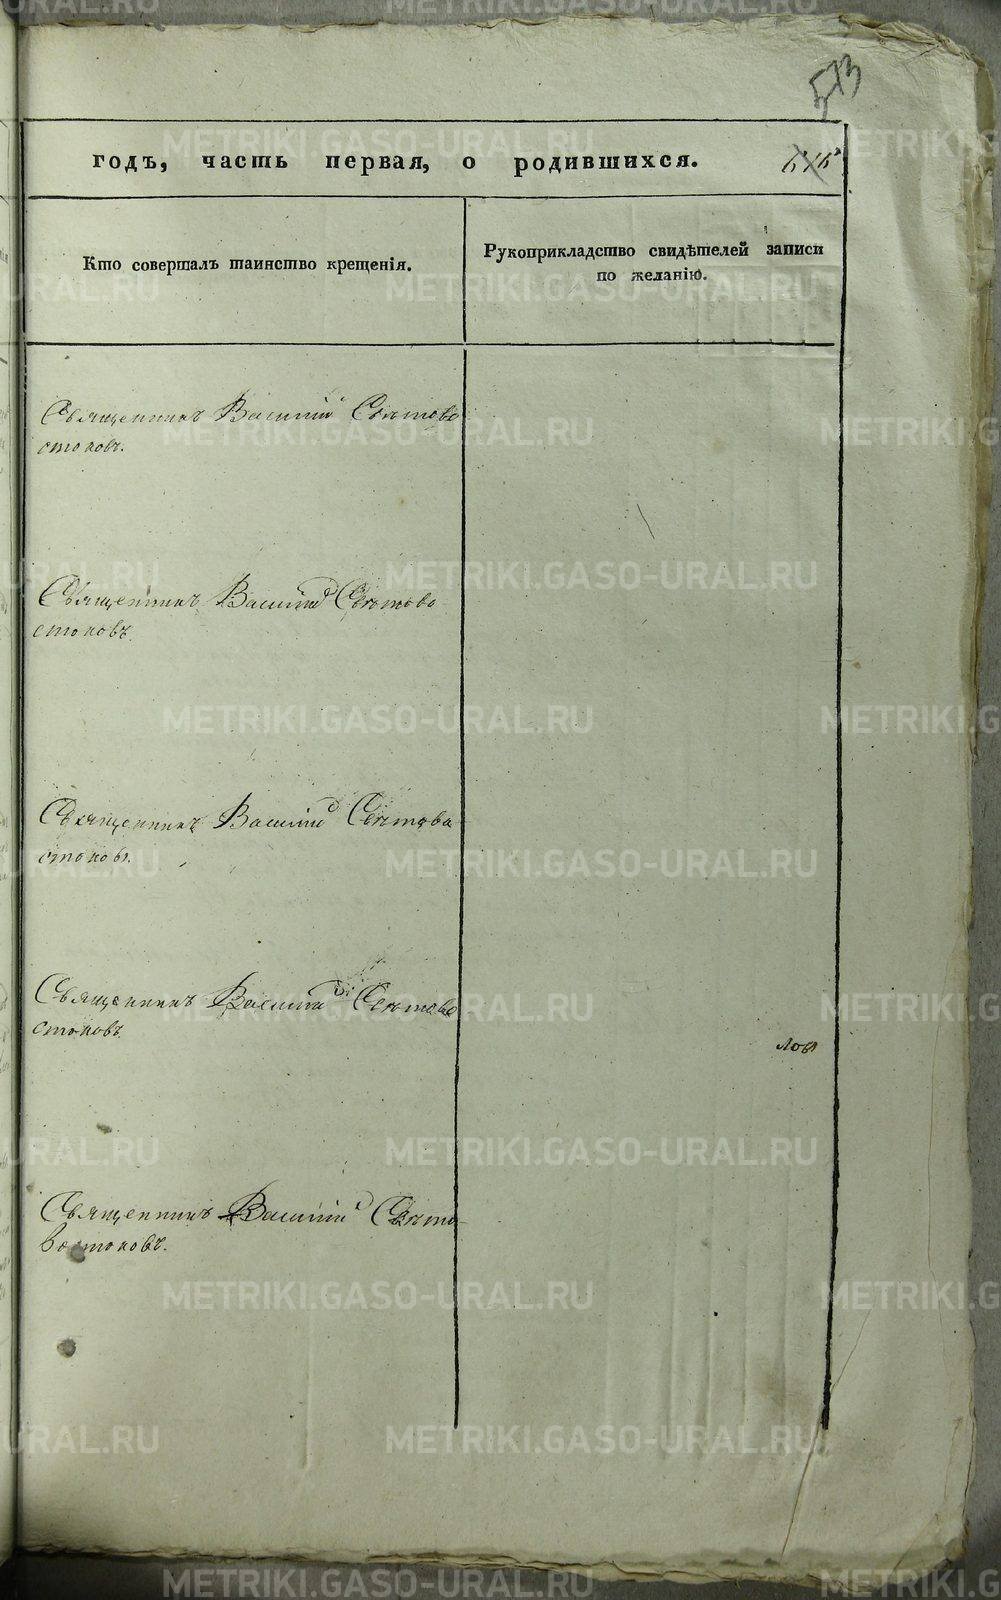 573
годъ, часть первая, о родившихся.
Кто совершалъ таинство крещенія.
Рукоприкладство свидѣтелей записи
по желанію.
Священникъ Василій Свѣтово
стоковъ.
Священникъ Василій Свѣтово
стоковъ.
Священникъ Василій Свѣтово
стоковъ.
Священникъ Василій Свѣтово
стоковъ.
Священникъ Василій Свѣто-
востоковъ.
METRIKI.GASO-URAL.RU